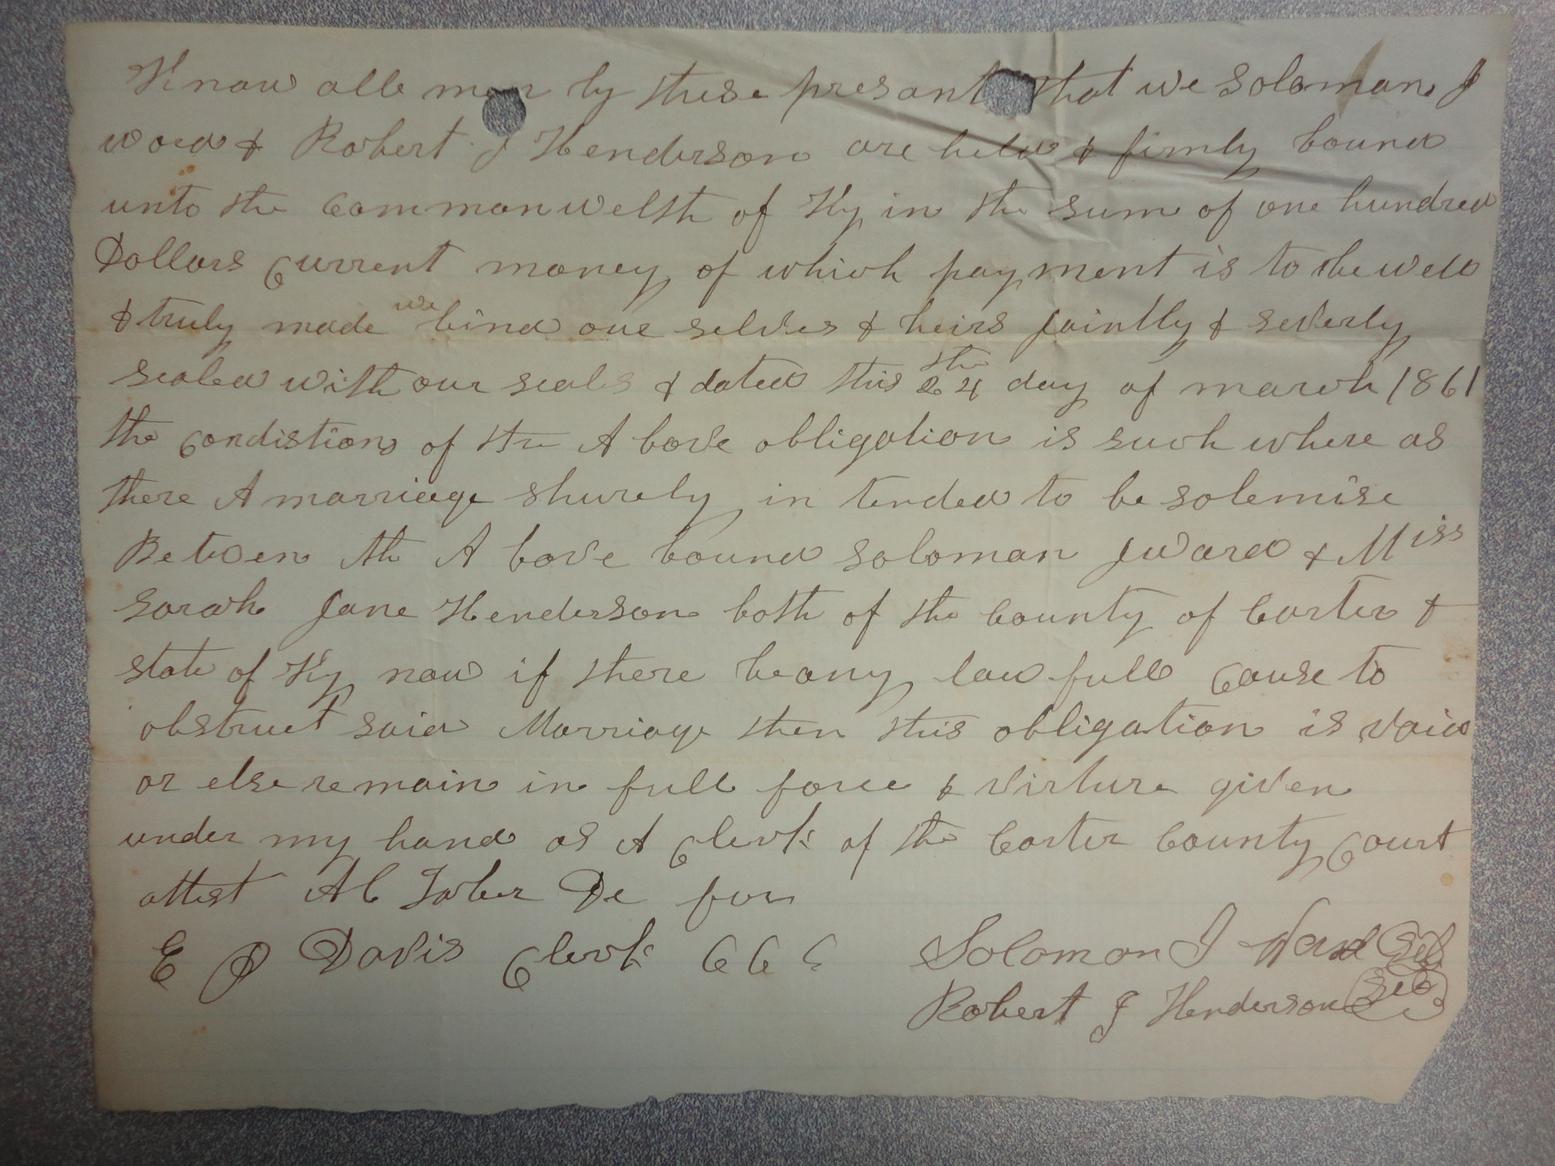 Know alle men by these presant that we Soloman J
Ward & Robert J Henderson are held & firmly bound
unto the Commonwelth of Ky in the sum of one hundred
Dollars Current money of which payment is to be well
& truly made we bind our selves & heirs Jointly & severly
sealed with our seals & dated this the 24 day of march 1861
the Condistion of the A bove obligation is such where as
there A marriege shurely in tended to be solemise
Between the A bove bound Soloman J Ward & Miss
Sarah Jane Henderson both of the County of Carter &
state of Ky now if there be any law full Cause to
obstruct said Marriage then this obligation is void
or else remain in full force & virture given
under my hand as A Clerk of the Carter County Court
attest A C De for
E D Davis Clerk C C C
Solomon J Ward Sel
Robert J Henderson Sel